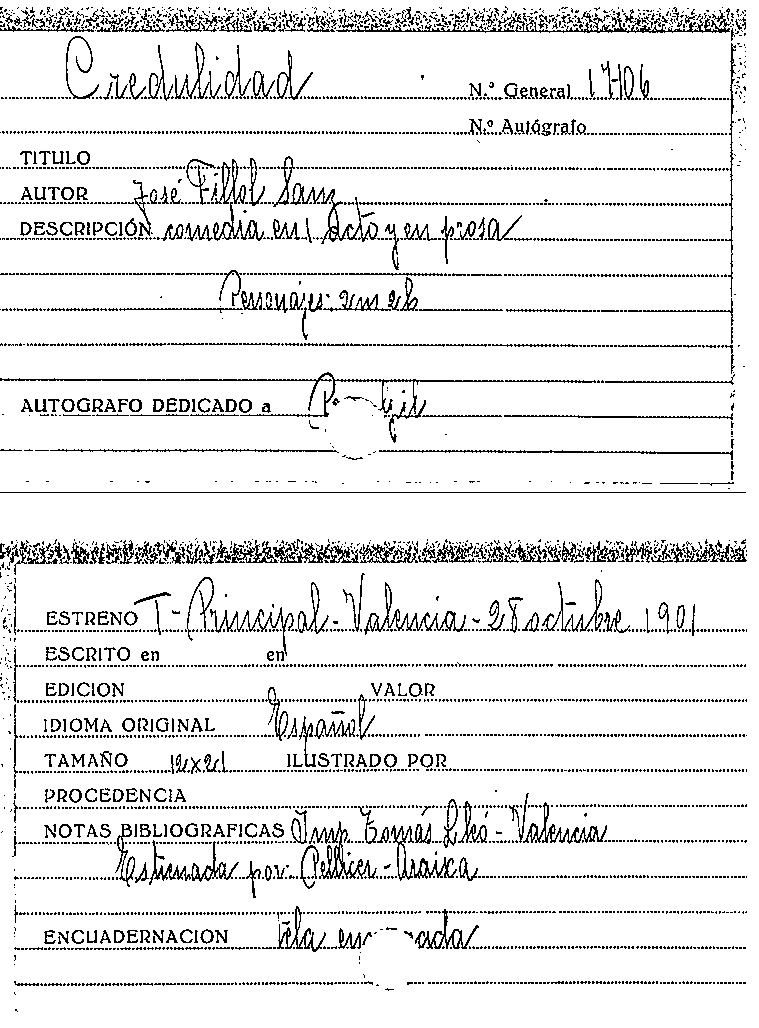 Credulidad
N.º General 17106
N.º Autógrafo
TITULO
AUTOR José Fillol Sanz
DESCRIPCIÓN comedia en 1 Acto y en prosa
Personajes: 2m 2h
AUTOGRAFO DEDICADO a
ESTRENO T-Principal-Valencia-28 octubre 1901
ESCRITO en en
EDICION VALOR
IDIOMA ORIGINAL Español
TAMAÑO 12x21 ILUSTRADO POR
PROCEDENCIA
NOTAS BIBLIOGRAFICAS Imp Tomás - Valencia
Estrenada por: Pellicer-Araixa
ENCUADERNACION tela